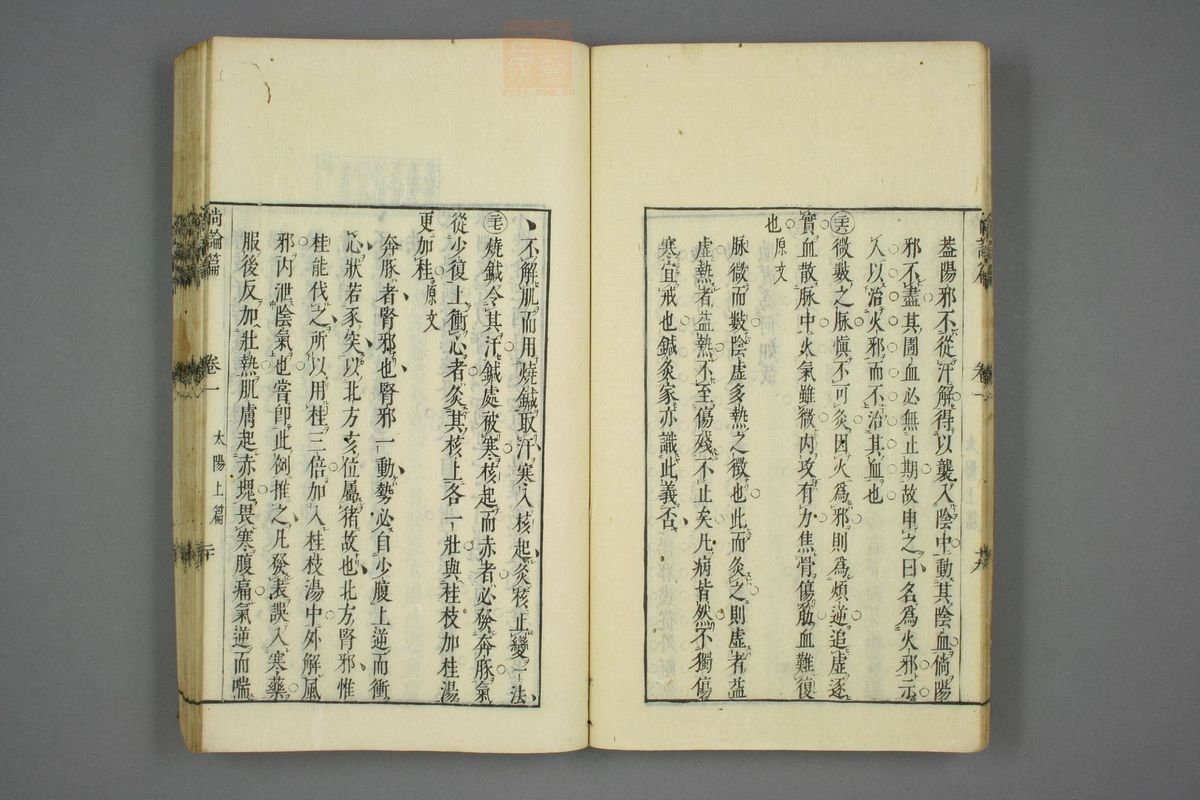 蓋陽邪不從汗解得以襲入陰中動其陰血倘陽
邪不盡其圊血必無止期故申之曰名為火邪示
人以治火邪而不治其血也
微數之脉愼不可灸因火為邪則為煩逆追虛逐
實血散脉中火氣雖微內攻有力焦骨傷筋血難復
也原文
脉微而數陰虛多熱之徵也此而灸之則虛者益
虛熱者益熱不至傷殘不止矣凡病皆然不獨傷
寒宜戒也鍼灸家亦識此義否
卷一
不解肌而用燒鍼取汗寒入核起灸核止變一法
燒鍼令其汗鍼處被寒核起而赤者必發奔豚氣
從少復上衝心者灸其核上各一壯與桂枝加桂湯
更加桂原文
奔豚者腎邪也腎邪一動勢必自少腹上逆而衝
心狀若豕突以北方亥位屬猪故也北方腎邪惟
桂能伐之所以用桂三倍加入桂枝湯中外解風
邪內泄陰氣也嘗卽此例推之凡發表誤入寒藥
服後反加壯熱肌膚起赤塊畏寒腹痛氣逆而喘
尚論篇
卷一
太陽上篇
二十
家醫
zysj.com.cn